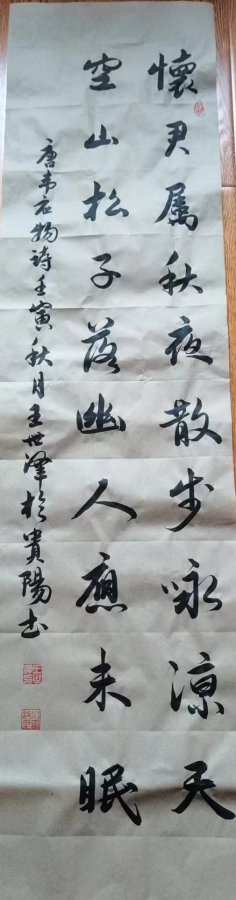 懷君屬秋夜散步詠涼天
空山松子落幽人應未眠
唐韦应物詩壬寅秋月王世澤於貴陽书